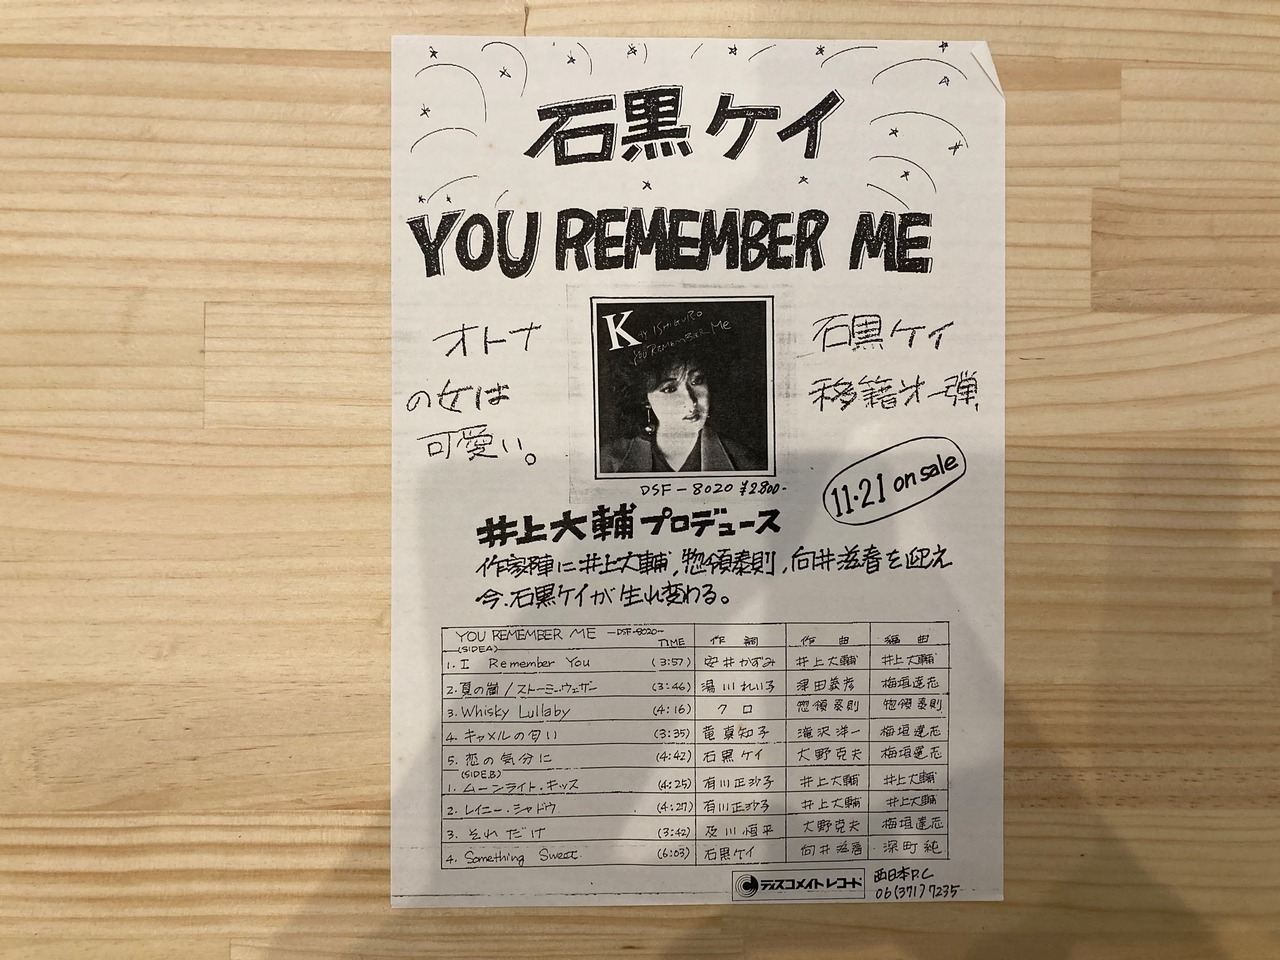 石黒ケイ
YOU REMEMBER ME
オトナ
の女は
可愛い。
K ay ISHIGURO
YOU REMEMBER Me
石黒ケイ
移籍才一弾
11・21 on sale
DSF-8020 ¥2800-
井上大輔プロデュース
作家陣に井上大輔,惣領泰則,向井滋春を迎え
今.石黒ケイが生れ変わる。
YOU REMEMBER ME -DSF-8020- TIME 作詞 作曲 編曲
(SIDE A)
1. I Remember You (3:57) 安井かずみ 井上大輔 井上大輔
2. 夏の嵐/ストーミー・ウェザー (3:46) 湯川れい子 深田義彦 梅垣達志
3. Whisky Lullaby (4:16) クロ 惣領泰則 惣領泰則
4. キャメルの匂い (3:35) 竜真知子 滝沢洋一 梅垣達志
5. 恋の気分に (4:42) 石黒ケイ 大野克夫 梅垣達志
(SIDE B)
1. ムーンライト・キッス (4:25) 有川正沙子 井上大輔 井上大輔
2. レイニー・シャドウ (4:27) 有川正沙子 井上大輔 井上大輔
3. それだけ (3:42) 及川恒平 大野克夫 梅垣達志
4. Something Sweet (6:03) 石黒ケイ 向井滋春 深町純
ディスコメイトレコード
西日本P.C
06(371)7235